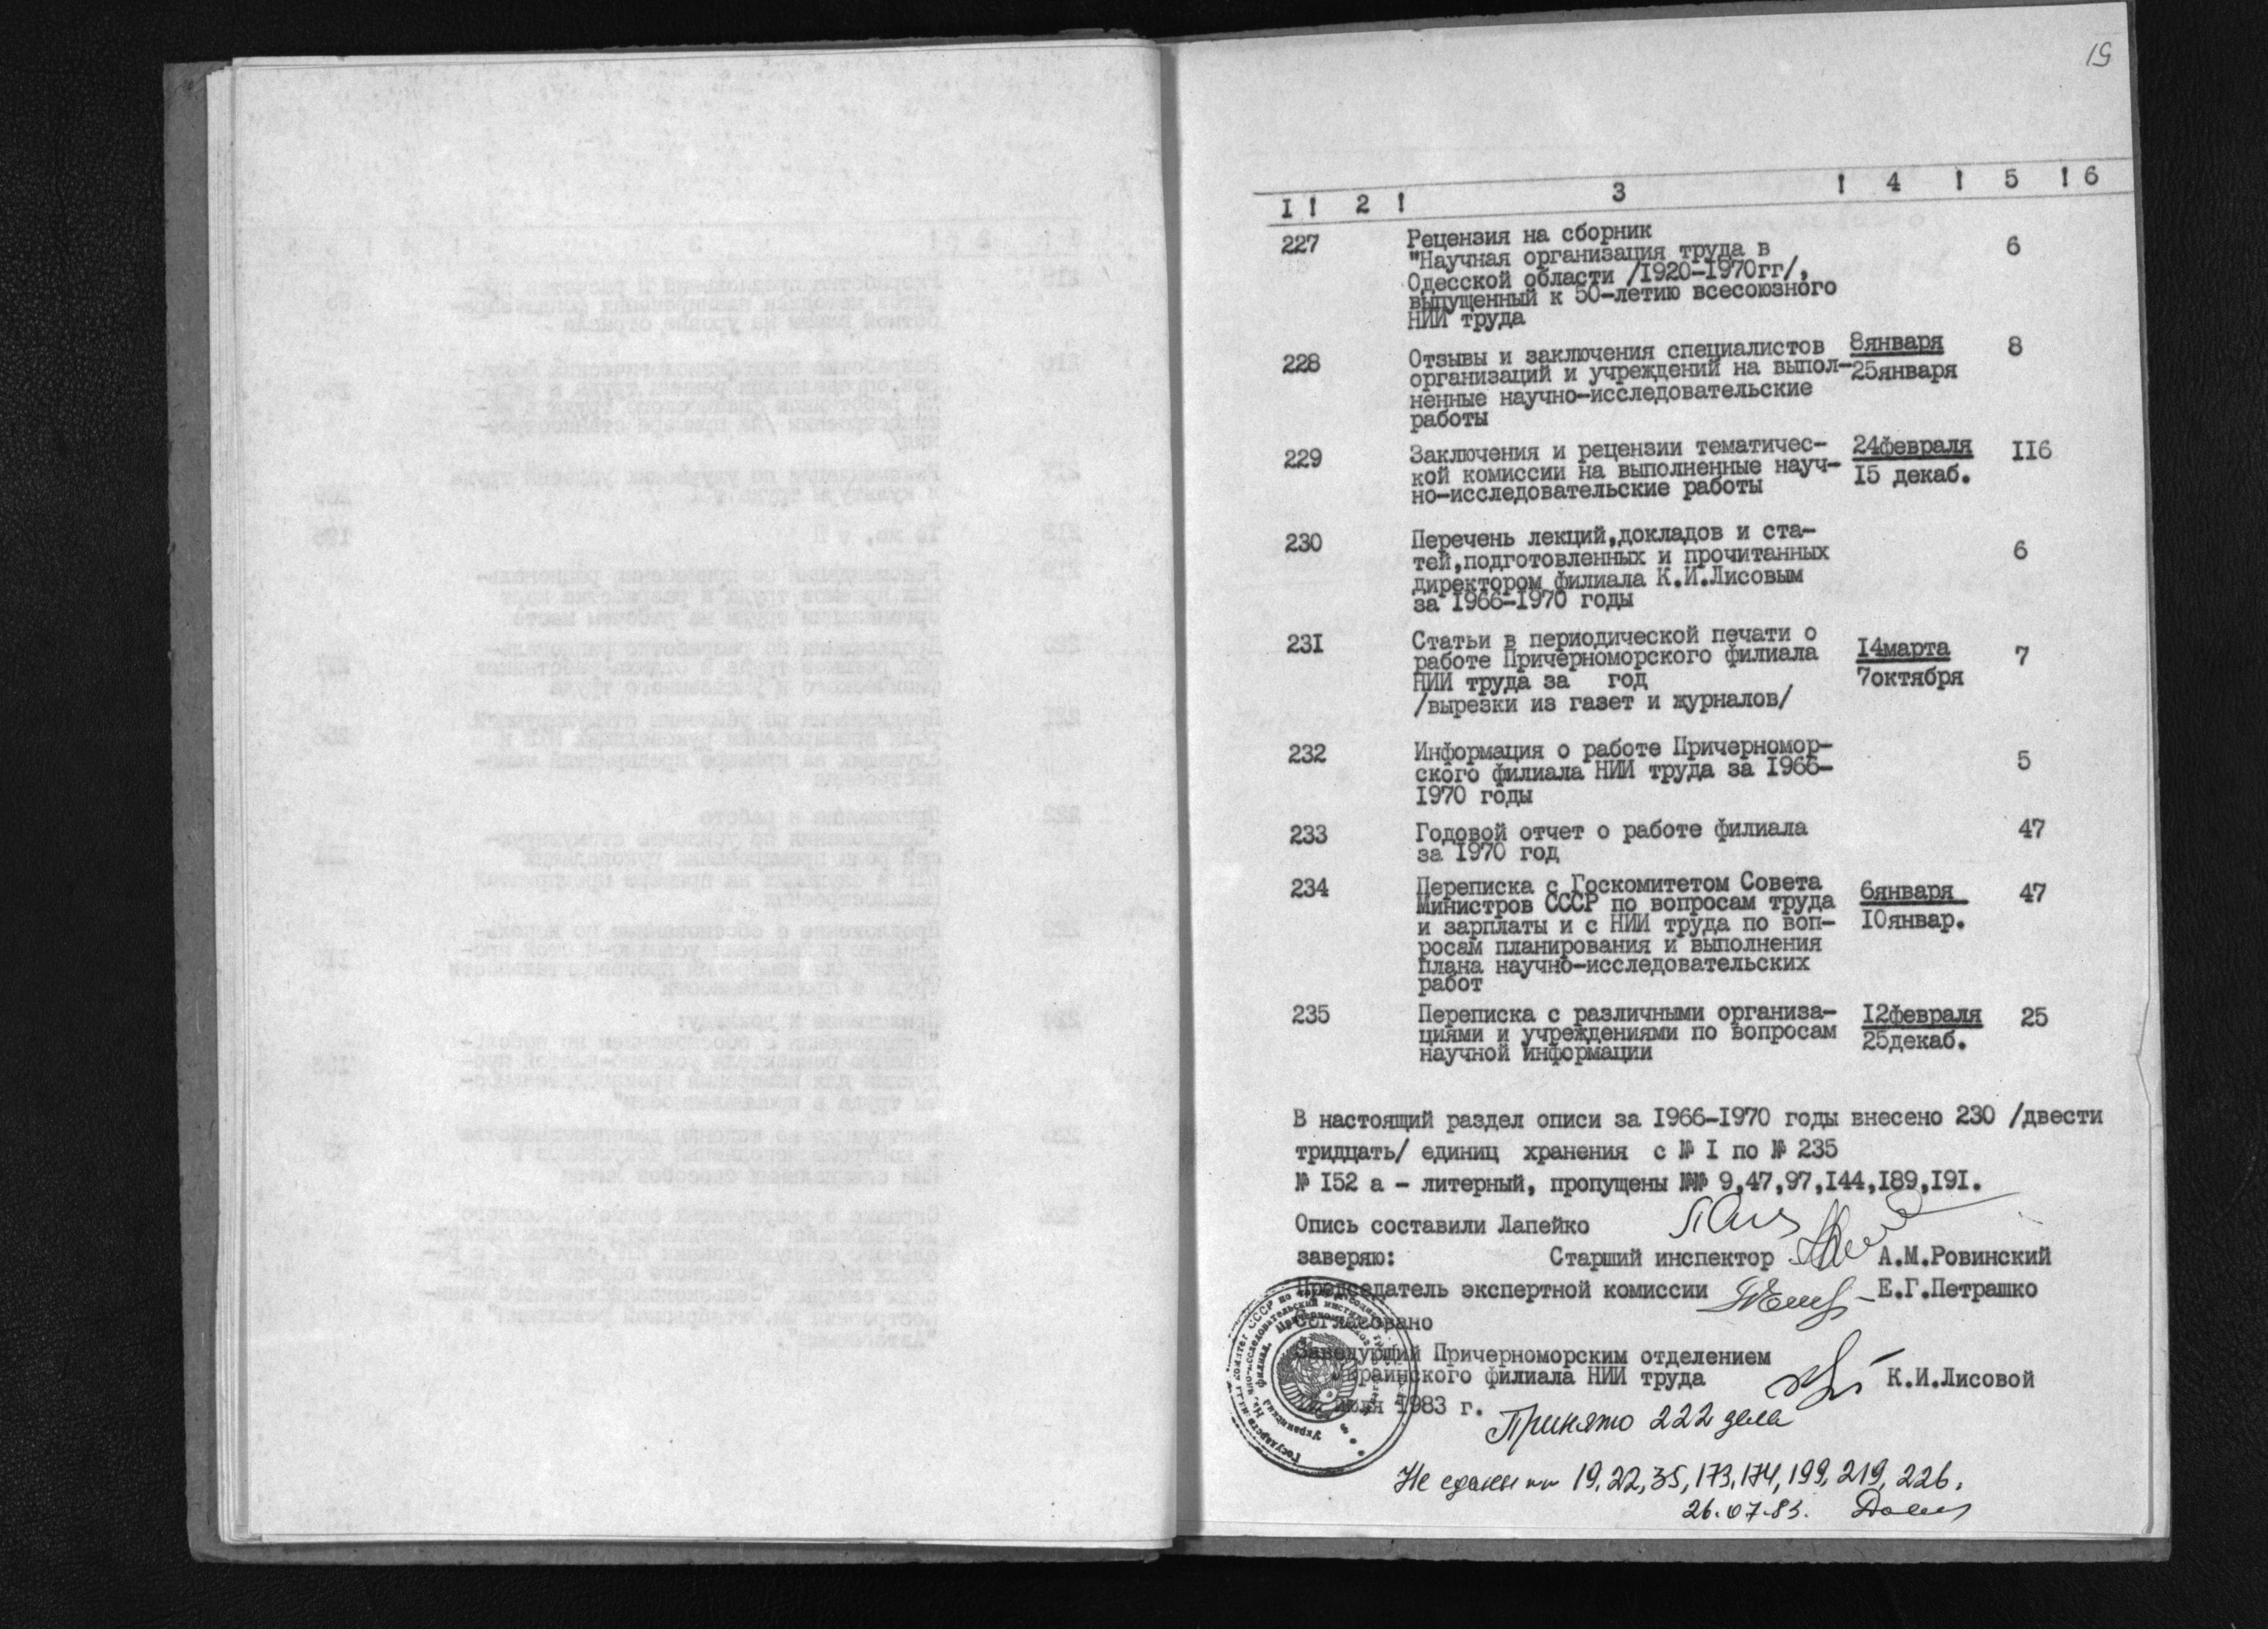 19
I ! 2 ! 3 ! 4 ! 5 ! 6
227 Рецензия на сборник 6
"Научная организация труда в
Одесской области /1920-1970гг/,
выпущенный к 50-летию всесоюзного
НИИ труда
228 Отзывы и заключения специалистов 8января 8
организаций и учреждений на выпол- 25января
ненные научно-исследовательские
работы
229 Заключения и рецензии тематичес- 24февраля II6
кой комиссии на выполненные науч- I5 декаб.
но-исследовательские работы
230 Перечень лекций,докладов и ста-
тей,подготовленных и прочитанных 6
директором филиала К.И.Лисовым
за I966-I970 годы
23I Статьи в периодической печати о
работе Причерноморского филиала I4марта 7
НИИ труда за год 7октября
/вырезки из газет и журналов/
232 Информация о работе Причерномор-
ского филиала НИИ труда за I966- 5
I970 годы
233 Годовой отчет о работе филиала 47
за I970 год
234 Переписка с Госкомитетом Совета 6января 47
Министров СССР по вопросам труда
и зарплаты и с НИИ труда по воп- I0январ.
росам планирования и выполнения
плана научно-исследовательских
работ
235 Переписка с различными организа- I2февраля 25
циями и учреждениями по вопросам 25декаб.
научной информации
В настоящий раздел описи за I966-I970 годы внесено 230 /двести
тридцать/ единиц хранения с № I по № 235
№ I52 а - литерный, пропущены №№ 9,47,97,I44,I89,I9I.
Опись составили Лапейко
заверяю: Старший инспектор А.М.Ровинский
Председатель экспертной комиссии Е.Г.Петрашко
Согласовано
Заведующий Причерноморским отделением
Украинского филиала НИИ труда К.И.Лисовой
июля 1983 г.
Принято 222 дела
Не сданы 19, 22, 35, 173, 174, 199, 219, 226.
26.07.83.